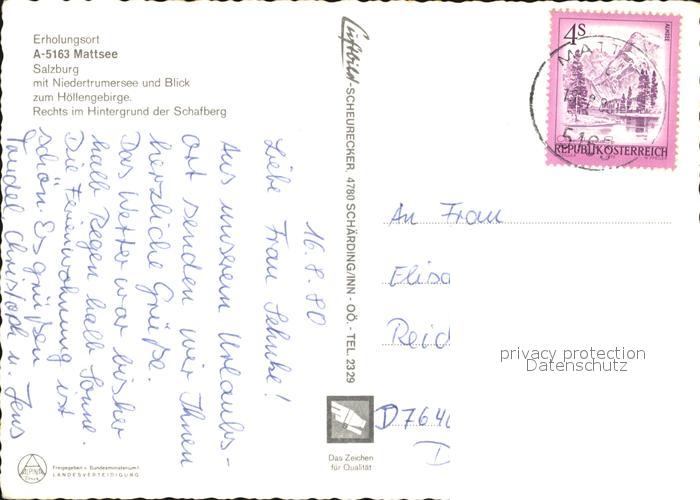 Erholungsort
A-5163 Mattsee
Salzburg
mit Niedertrumersee und Blick
zum Höllengebirge.
Rechts im Hintergrund der Schafberg
16.8.80
Liebe Frau
Aus unserem Urlaubs-
ort senden wir Ihnen
herzliche Grüße.
Das Wetter war bisher
halb Regen halb Sonne.
Die Ferienwohnung ist
schön. Es grüßen
Christoph u. Jens
Luftbild-SCHEURECKER, 4780 SCHÄRDING/INN - OÖ. - TEL. 2329
4S
ALMSEE
REPUBLIK ÖSTERREICH
An Frau
Elisa
Reid
D 764
D
privacy protection
Datenschutz
Das Zeichen
für Qualität
ALPINA
Freigegeben v. Bundesministerium f.
LANDESVERTEIDIGUNG